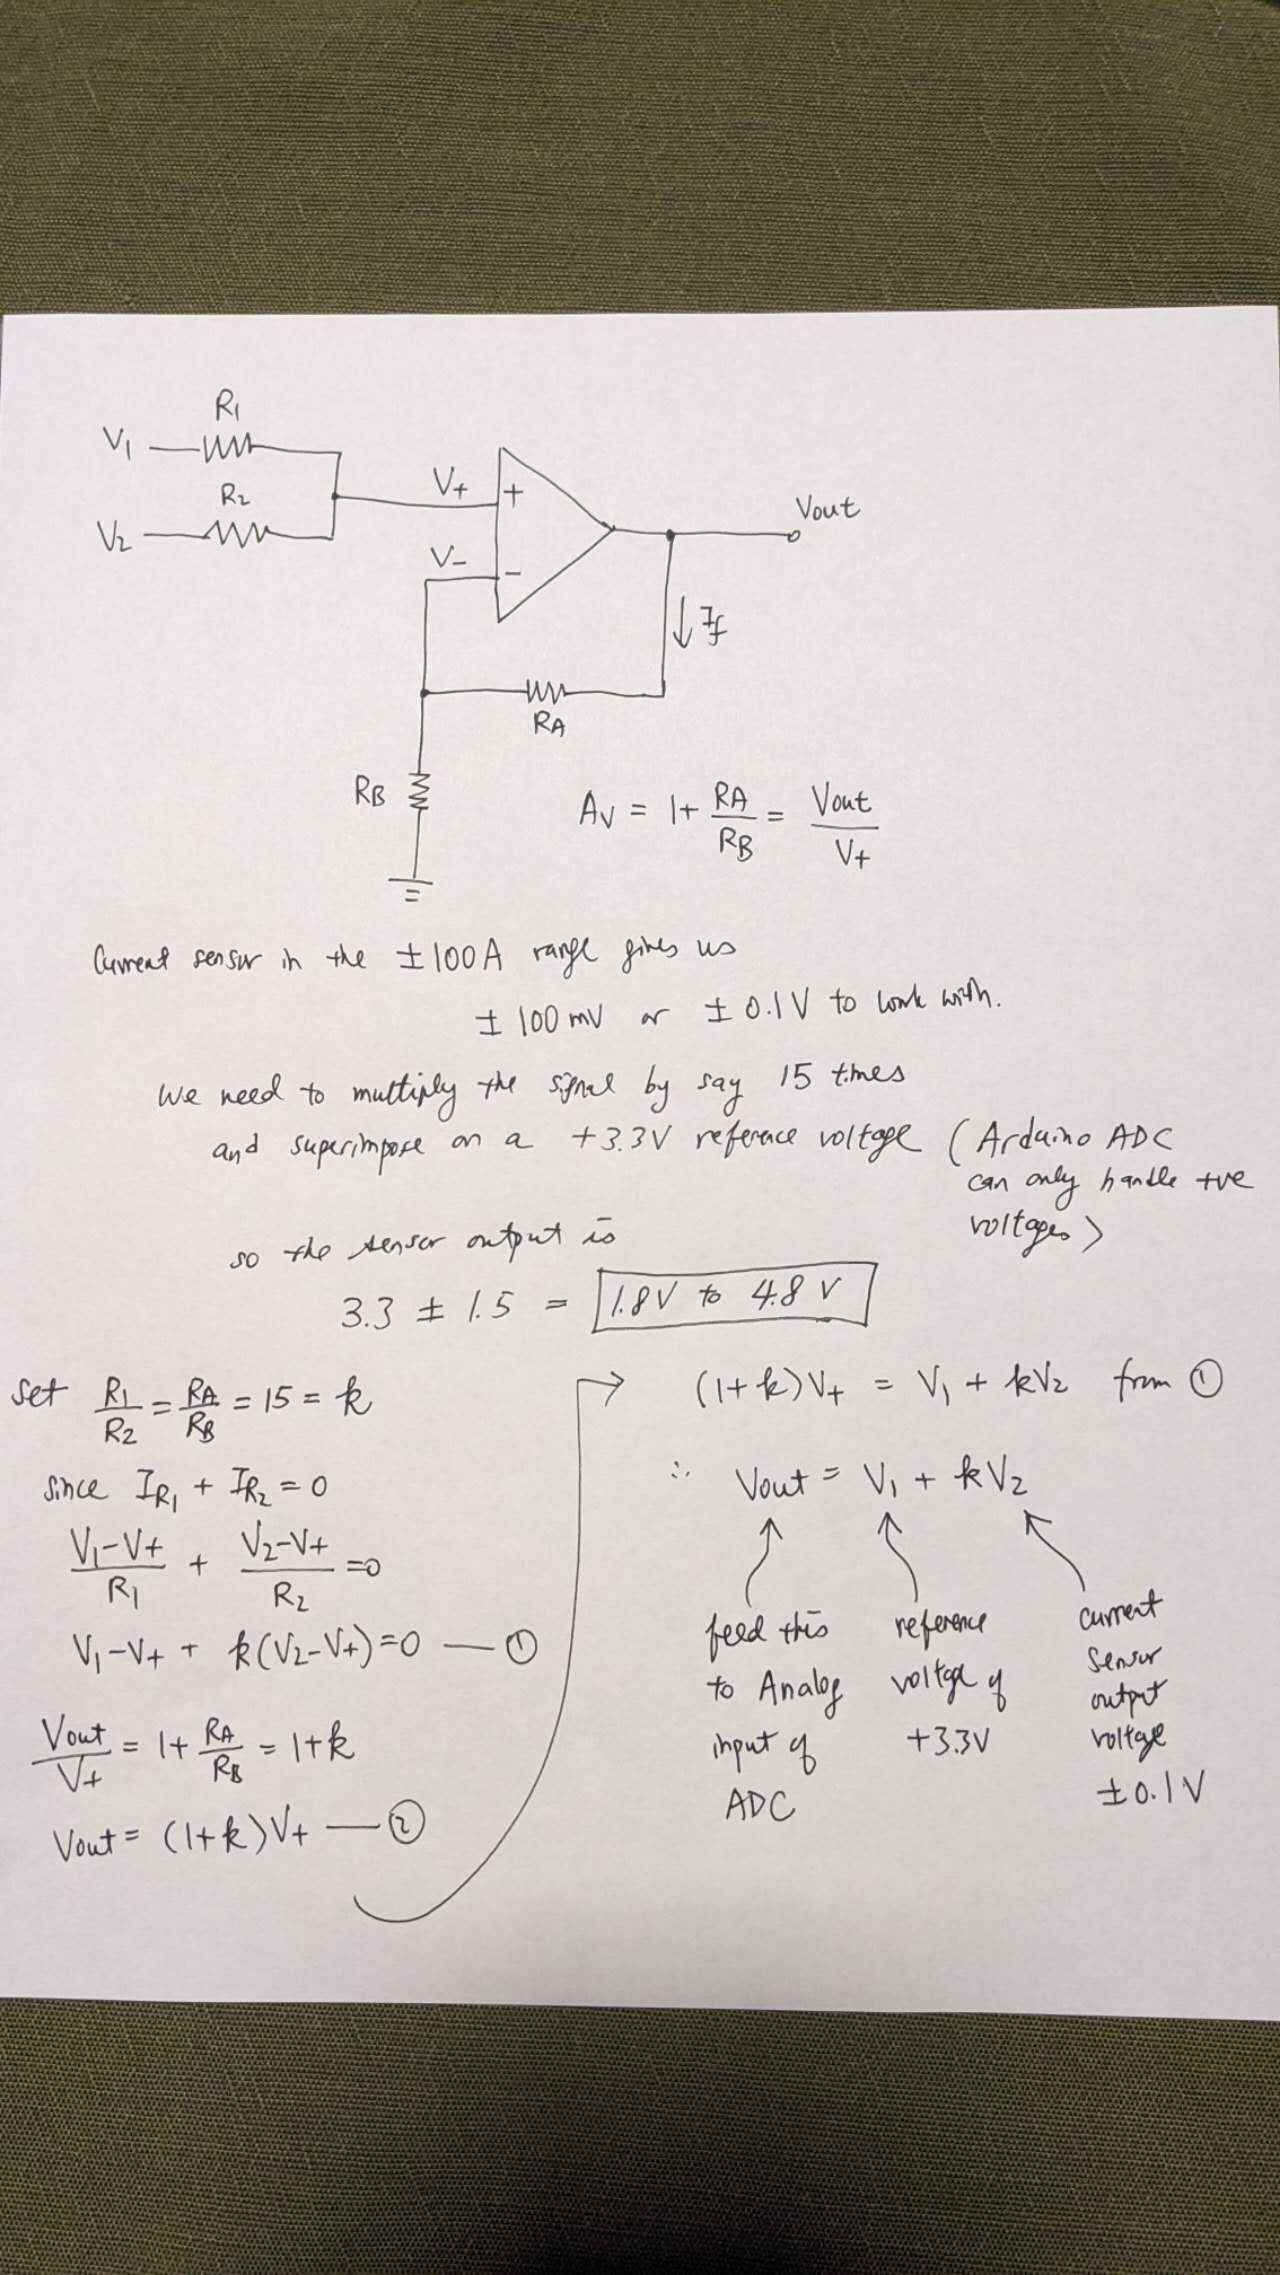 R1
V1
R2
V2
V+
+
V-
-
Vout
If
RA
RB
Av = 1+ RA/RB = Vout/V+
Current sensor in the ±100A range gives us
± 100 mV or ± 0.1V to work with.
We need to multiply the signal by say 15 times
and superimpose on a +3.3V reference voltage (Arduino ADC
can only handle +ve
voltages)
so the sensor output is
3.3 ± 1.5 = 1.8V to 4.8 V
set R1/R2 = RA/RB = 15 = k
since IR1 + IR2 = 0
V1-V+/R1 + V2-V+/R2 =0
V1-V+ + k(V2-V+)=0 — ①
Vout/V+ = 1+ RA/RB = 1+k
Vout = (1+k)V+ — ②
(1+k)V+ = V1 + kV2 from ①
∴ Vout = V1 + kV2
feed this
to Analog
input of
ADC
reference
voltage of
+3.3V
current
sensor
output
voltage
±0.1V